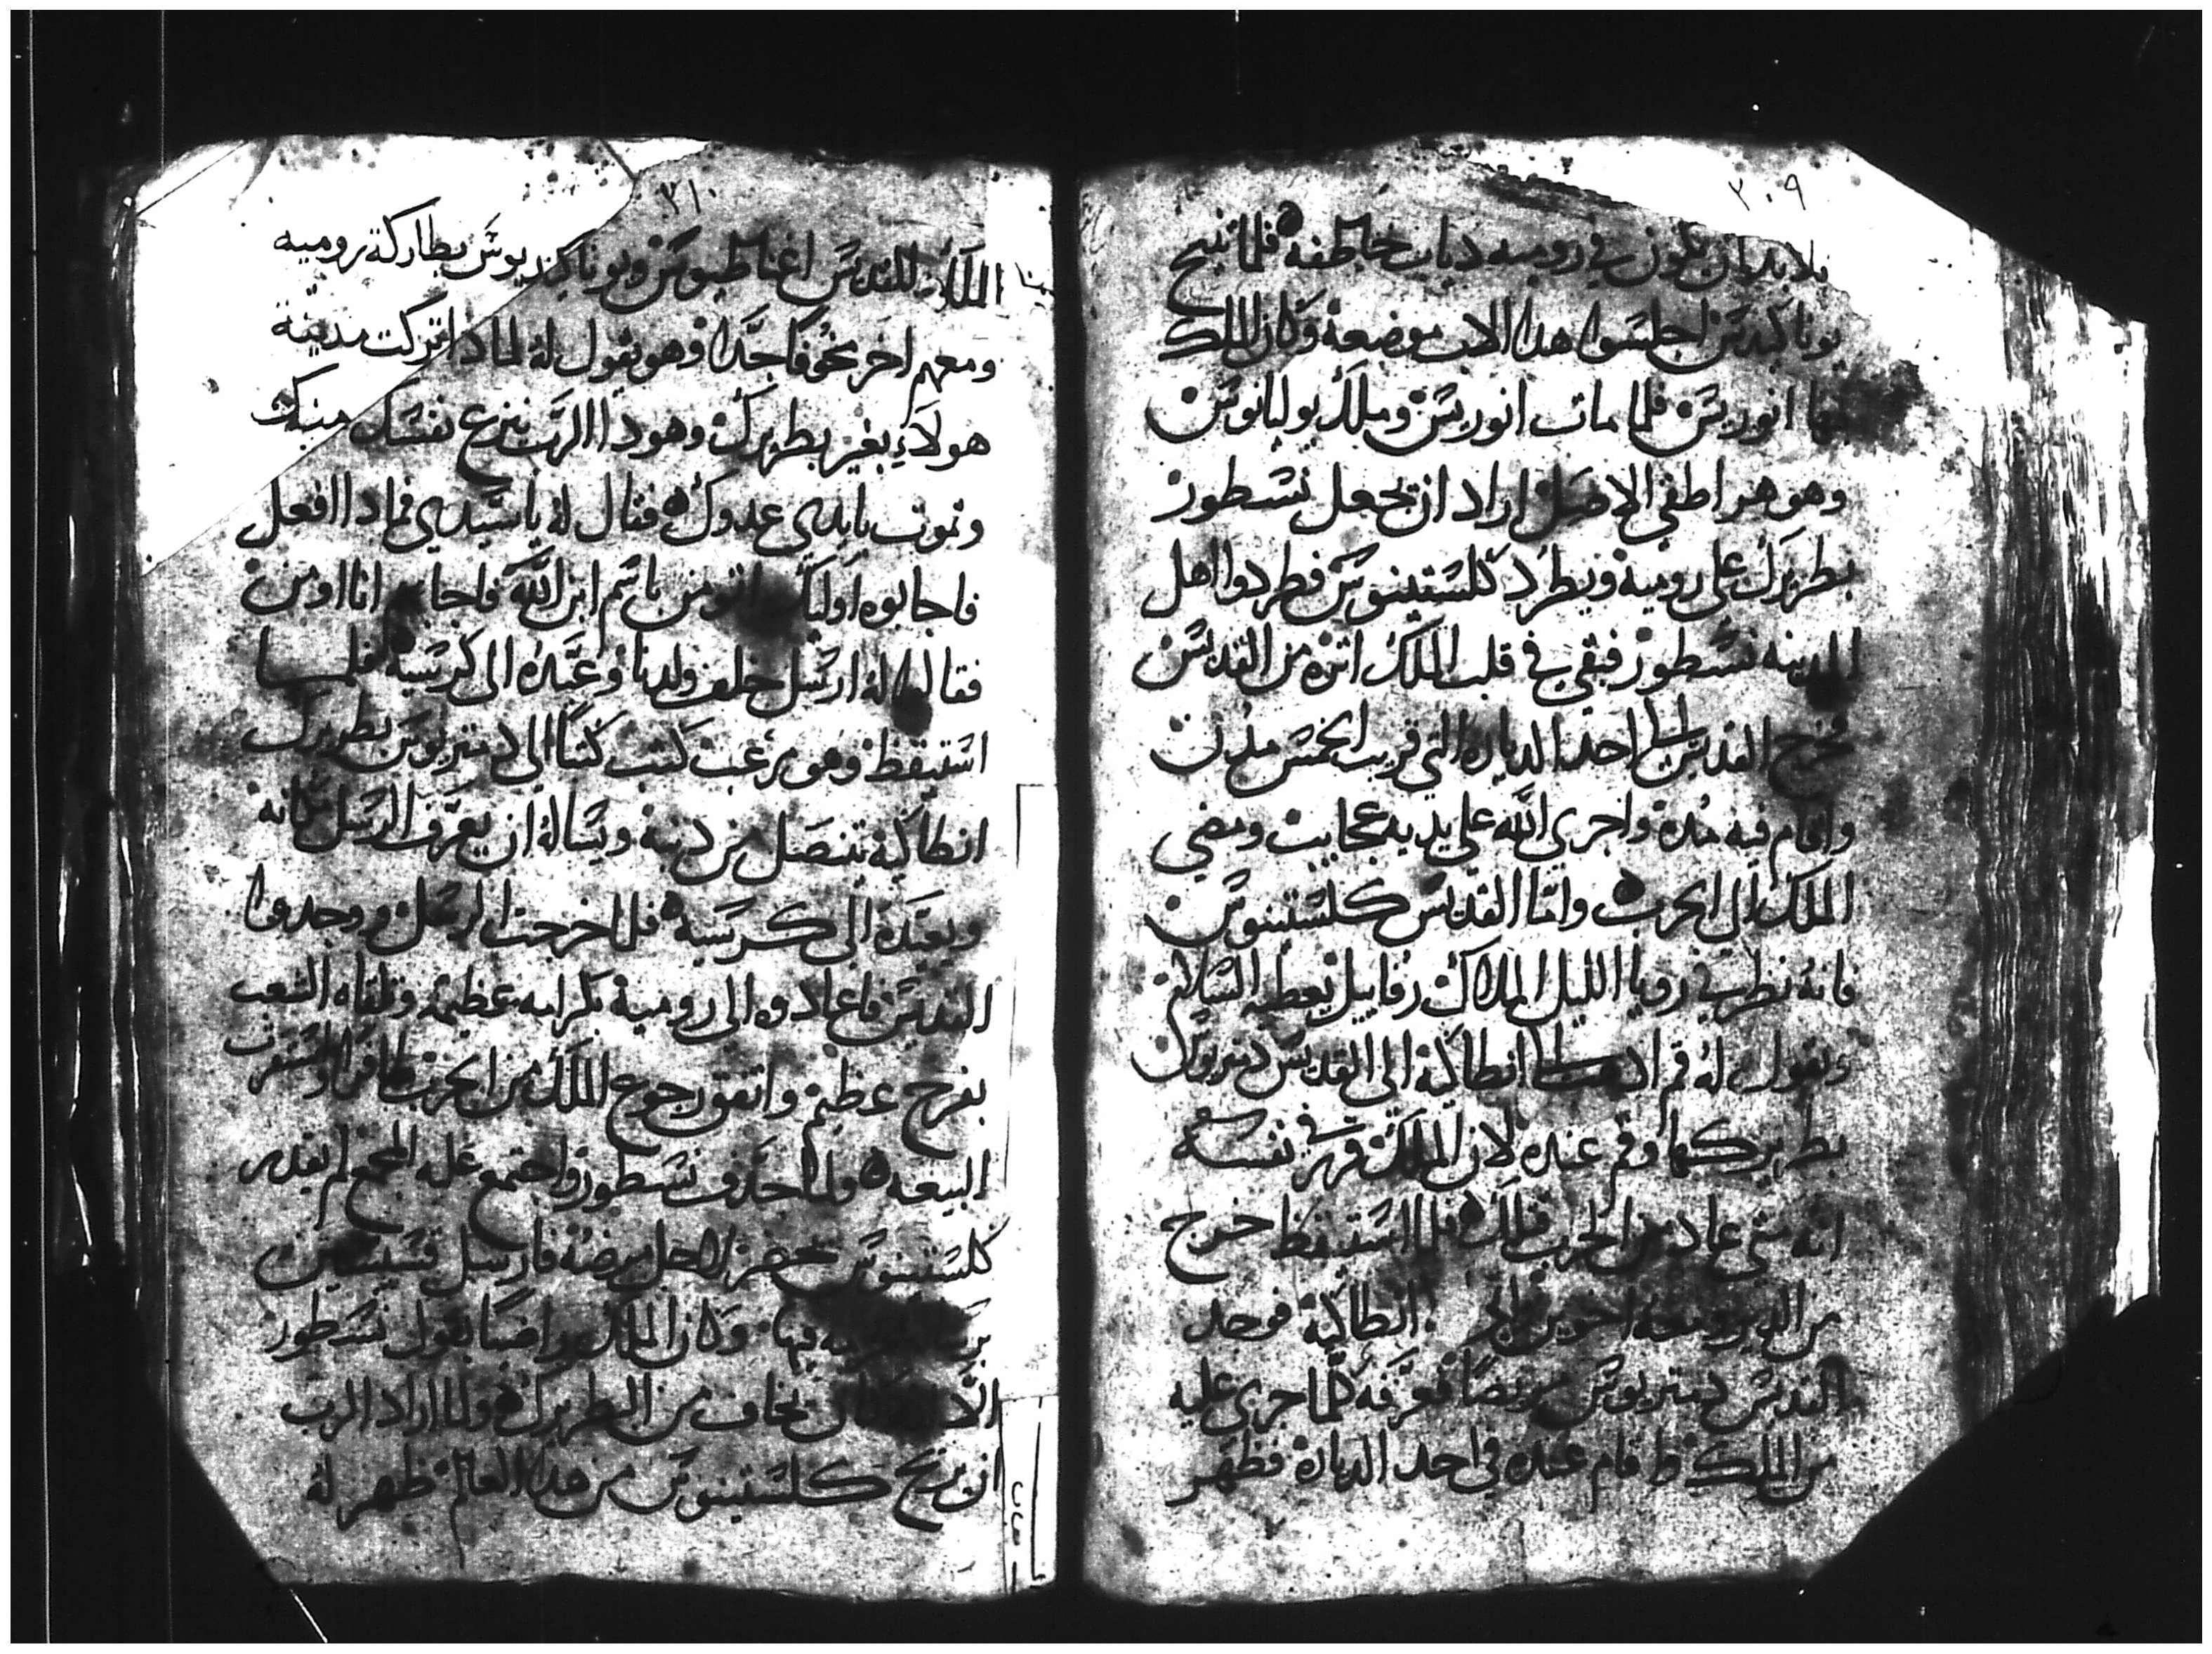 ٣٠٩
بلا بد ان يكون في روميه دياب خاطفه فلما تنيح
بوناكيدس اجلسوا هدا الاب موضعة وكان الملك
بها انوريس فلما مات انوريس وملك يوليانوس
وهو هراطقي الاصل اراد ان يجعل نسطور
بطريرك على رومية ويطرد كلستينوس فطردوا اهل
المدينه نسطور فبقي في قلب الملك اثره من القديس
فخرج القديس الى احد الدياره التي قريب الخمس مدن
واقام فيه مدة واجري الله علي يديه عجايب ومضي
الملك الى الحرب واما القديس كلستينوس
فانه نظر في رويا الليل الملاك رفاييل يعطيه السلام
ويقول له قم ادهب الى انطاكية الى القديس دمتريوس
بطريركها وقم عنده لان الملك قرر في نفسه
انه متي عاد من الحرب قتلك فلما استيقظ خرج
من الدير ومعه اخوين انطاكية فوجد
القديس دمتريوس مريضا فعرفه كلما جرى عليه
من الملك فاقام عنده في احد الديارة فظهر
٣١٠
الملاك للقديس اغناطيوس وبوناكنديوس بطاركة رومية
ومعهم اخر مخوفا جدا وهو يقول له لمادا تركت مدينة
هولاء بغير بطريرك وهودا الرب ينزع نفسك منك
وتموت بايدي عدوك فقال له ياسيدي فمادا افعل
فاجابوه اوليك اتومن باسم ابن الله فاجاب انا اومن
فقالوا له ارسل خلف ولدنا وعيده الى كرسية فلما
استيقظ وهو مرعب كتب كتبا الى دمتريوس بطريرك
انطاكية تنصل من دنبة ويساله ان يعرف الرسل مكانه
ويعيده الى كرسية فلما خرجت الرسل ووجدوا
القديس فاعادوه الى رومية بكرامه عظيمة وتلقاه الشعب
بفرح عظيم واتفق رجوع الملك من الحرب
البيعه ولما جدف نسطور واجتمع عليه المجمع لم يقدر
كلستينوس يحضر لاجل مرضة فارسل قسيسين
فيها وكان الملك راضيا بقول نسطور
يخاف من البطريرك ولما اراد الرب
ان يريح كلستينوس من هدا العالم ظهر له